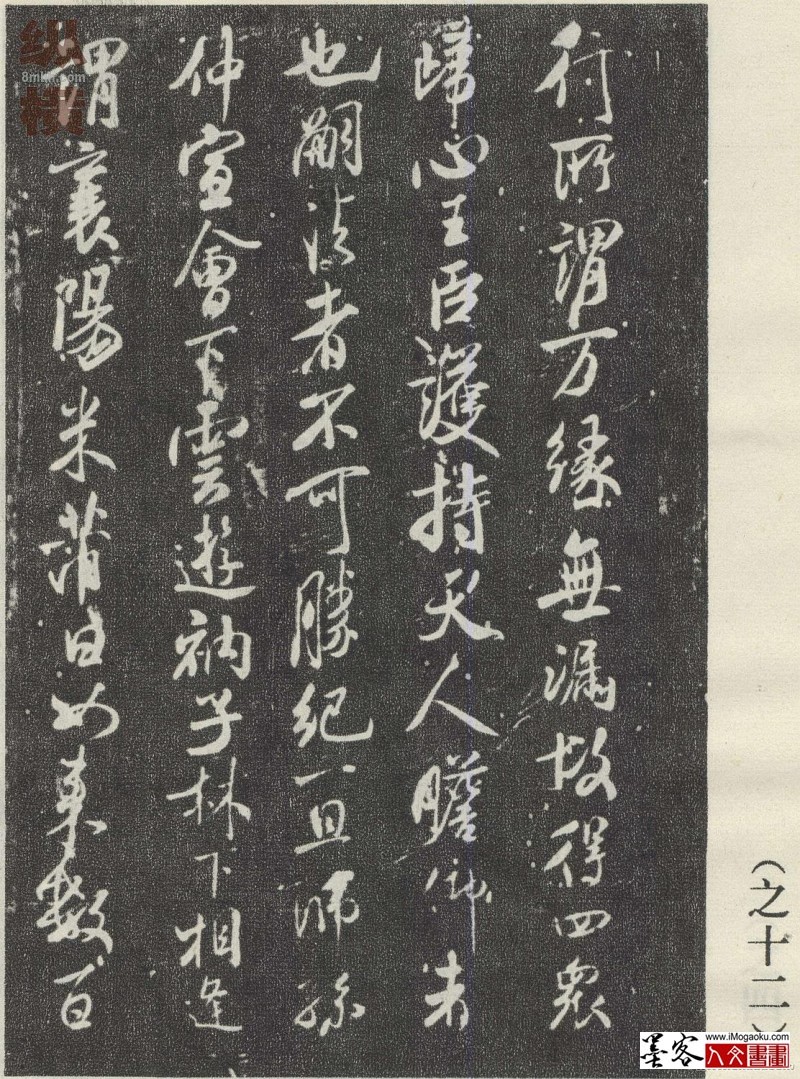 行所謂万緣無漏故得四衆
歸心王臣護持天人瞻仰者
也嗣法者不可勝紀一旦師孫
仲宣會下雲遊衲子林下相逢
謂襄陽米芾曰如來數百
(之十二)
纵横
8mhh.com
墨客
www.iMogaoku.com
人文書畫